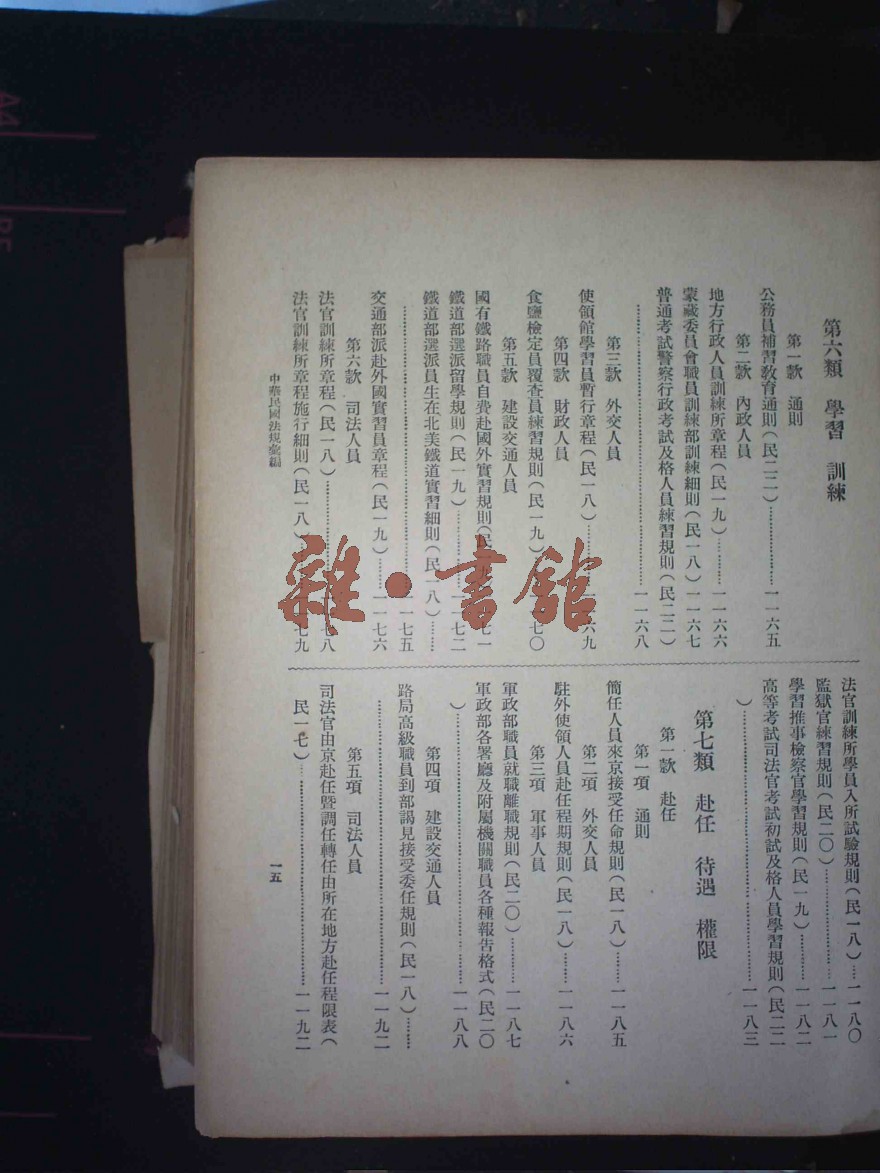 第六類　學習　訓練
第一款　通則
公務員補習教育通則（民二二）……一一六五
第二款　內政人員
地方行政人員訓練所章程（民一九）……一一六六
蒙藏委員會職員訓練部訓練細則（民一八）一一六七
普通考試警察行政考試及格人員練習規則（民二二）
……一一六八
第三款　外交人員
使領館學習員暫行章程（民一八）……一一六九
第四款　財政人員
食鹽檢定員覆查員練習規則（民一九）一一七〇
第五款　建設交通人員
國有鐵路職員自費赴國外實習規則（民一九）一一七一
鐵道部選派留學規則（民一九）……一一七二
鐵道部選派員生在北美鐵道實習細則（民一八）……
……一一七五
交通部派赴外國實習員章程（民一九）……一一七六
第六款　司法人員
法官訓練所章程（民一八）……一一七八
法官訓練所章程施行細則（民一八）……一一七九
法官訓練所學員入所試驗規則（民一八）…一一八〇
監獄官練習規則（民二〇）……一一八一
學習推事檢察官學習規則（民一九）……一一八二
高等考試司法官考試初試及格人員學習規則（民二二
）……一一八三
第七類　赴任　待遇　權限
第一款　赴任
第一項　通則
簡任人員來京接受任命規則（民一八）……一一八五
第二項　外交人員
駐外使領人員赴任程期規則（民一八）……一一八六
第三項　軍事人員
軍政部職員就職離職規則（民二〇）……一一八七
軍政部各署廳及附屬機關職員各種報告格式（民二〇
）……一一八八
第四項　建設交通人員
路局高級職員到部謁見接受委任規則（民一八）……
……一一九二
第五項　司法人員
司法官由京赴任暨調任轉任由所在地方赴任程限表（
民一七）……一一九二
中華民國法規彙編
一五
雜·書館